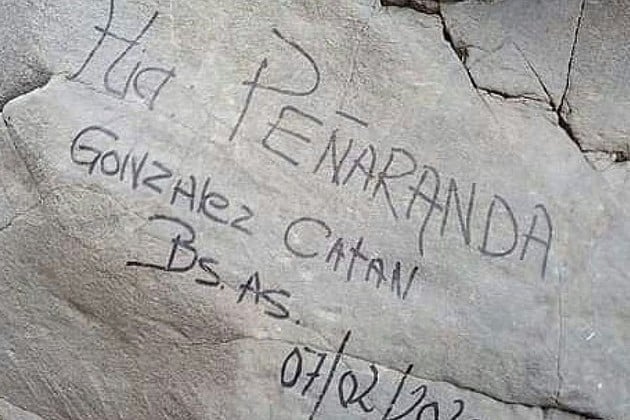 Flia. PEÑARANDA
GONZALEZ CATAN
Bs. AS.
07/02/202